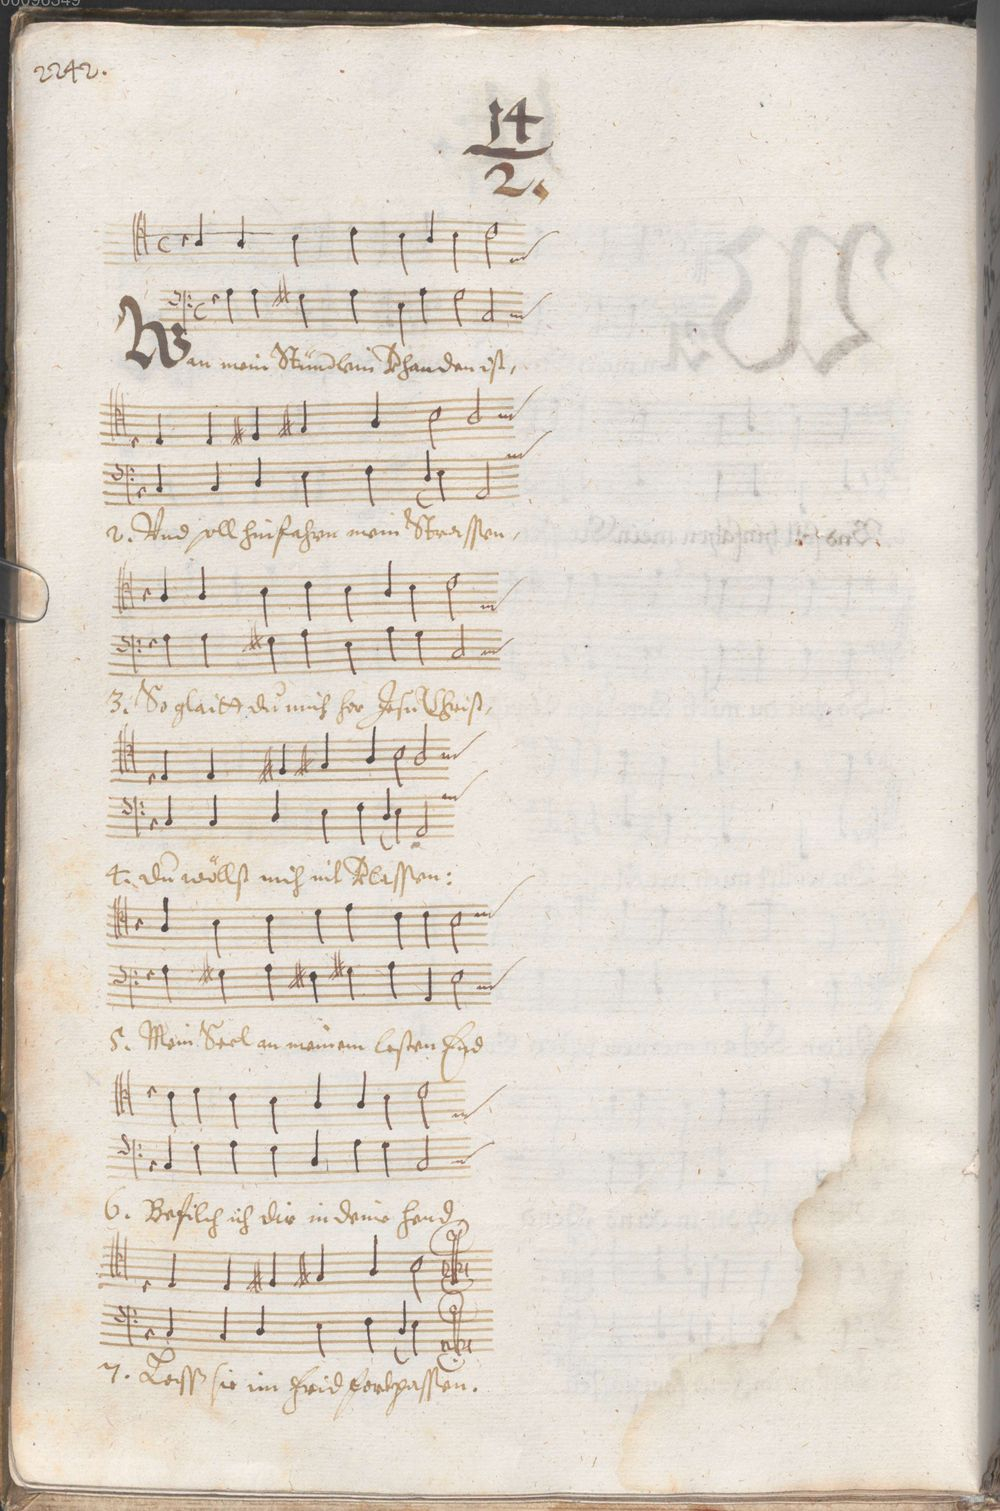 00098349
2242.
14
2.
Wan mein Stündlein Vhanden ist,
2. Vnd soll hinfahrn mein Strassen,
3. So glaitt du mich her Jesu Christ,
4. du wöllst mich nit Vlassen:
5. Mein Seel an meinem lesten End
6. Befilch ich dir in deine hend,
7. Lass sie im frid fortpassen.